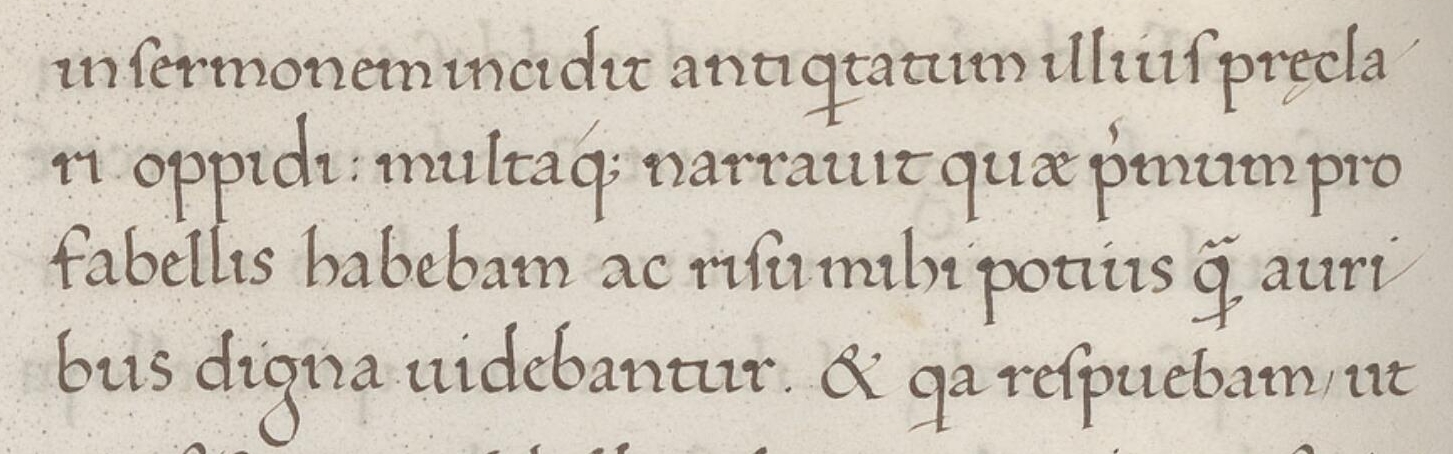 in sermonem incidit antiqtatum illius pręcla/
ri oppidi: multaq; narrauit quæ pͥmum pro
fabellis habebam ac risu mihi potius qͣ̃ auri/
bus digna uidebantur. & qa respuebam, ut